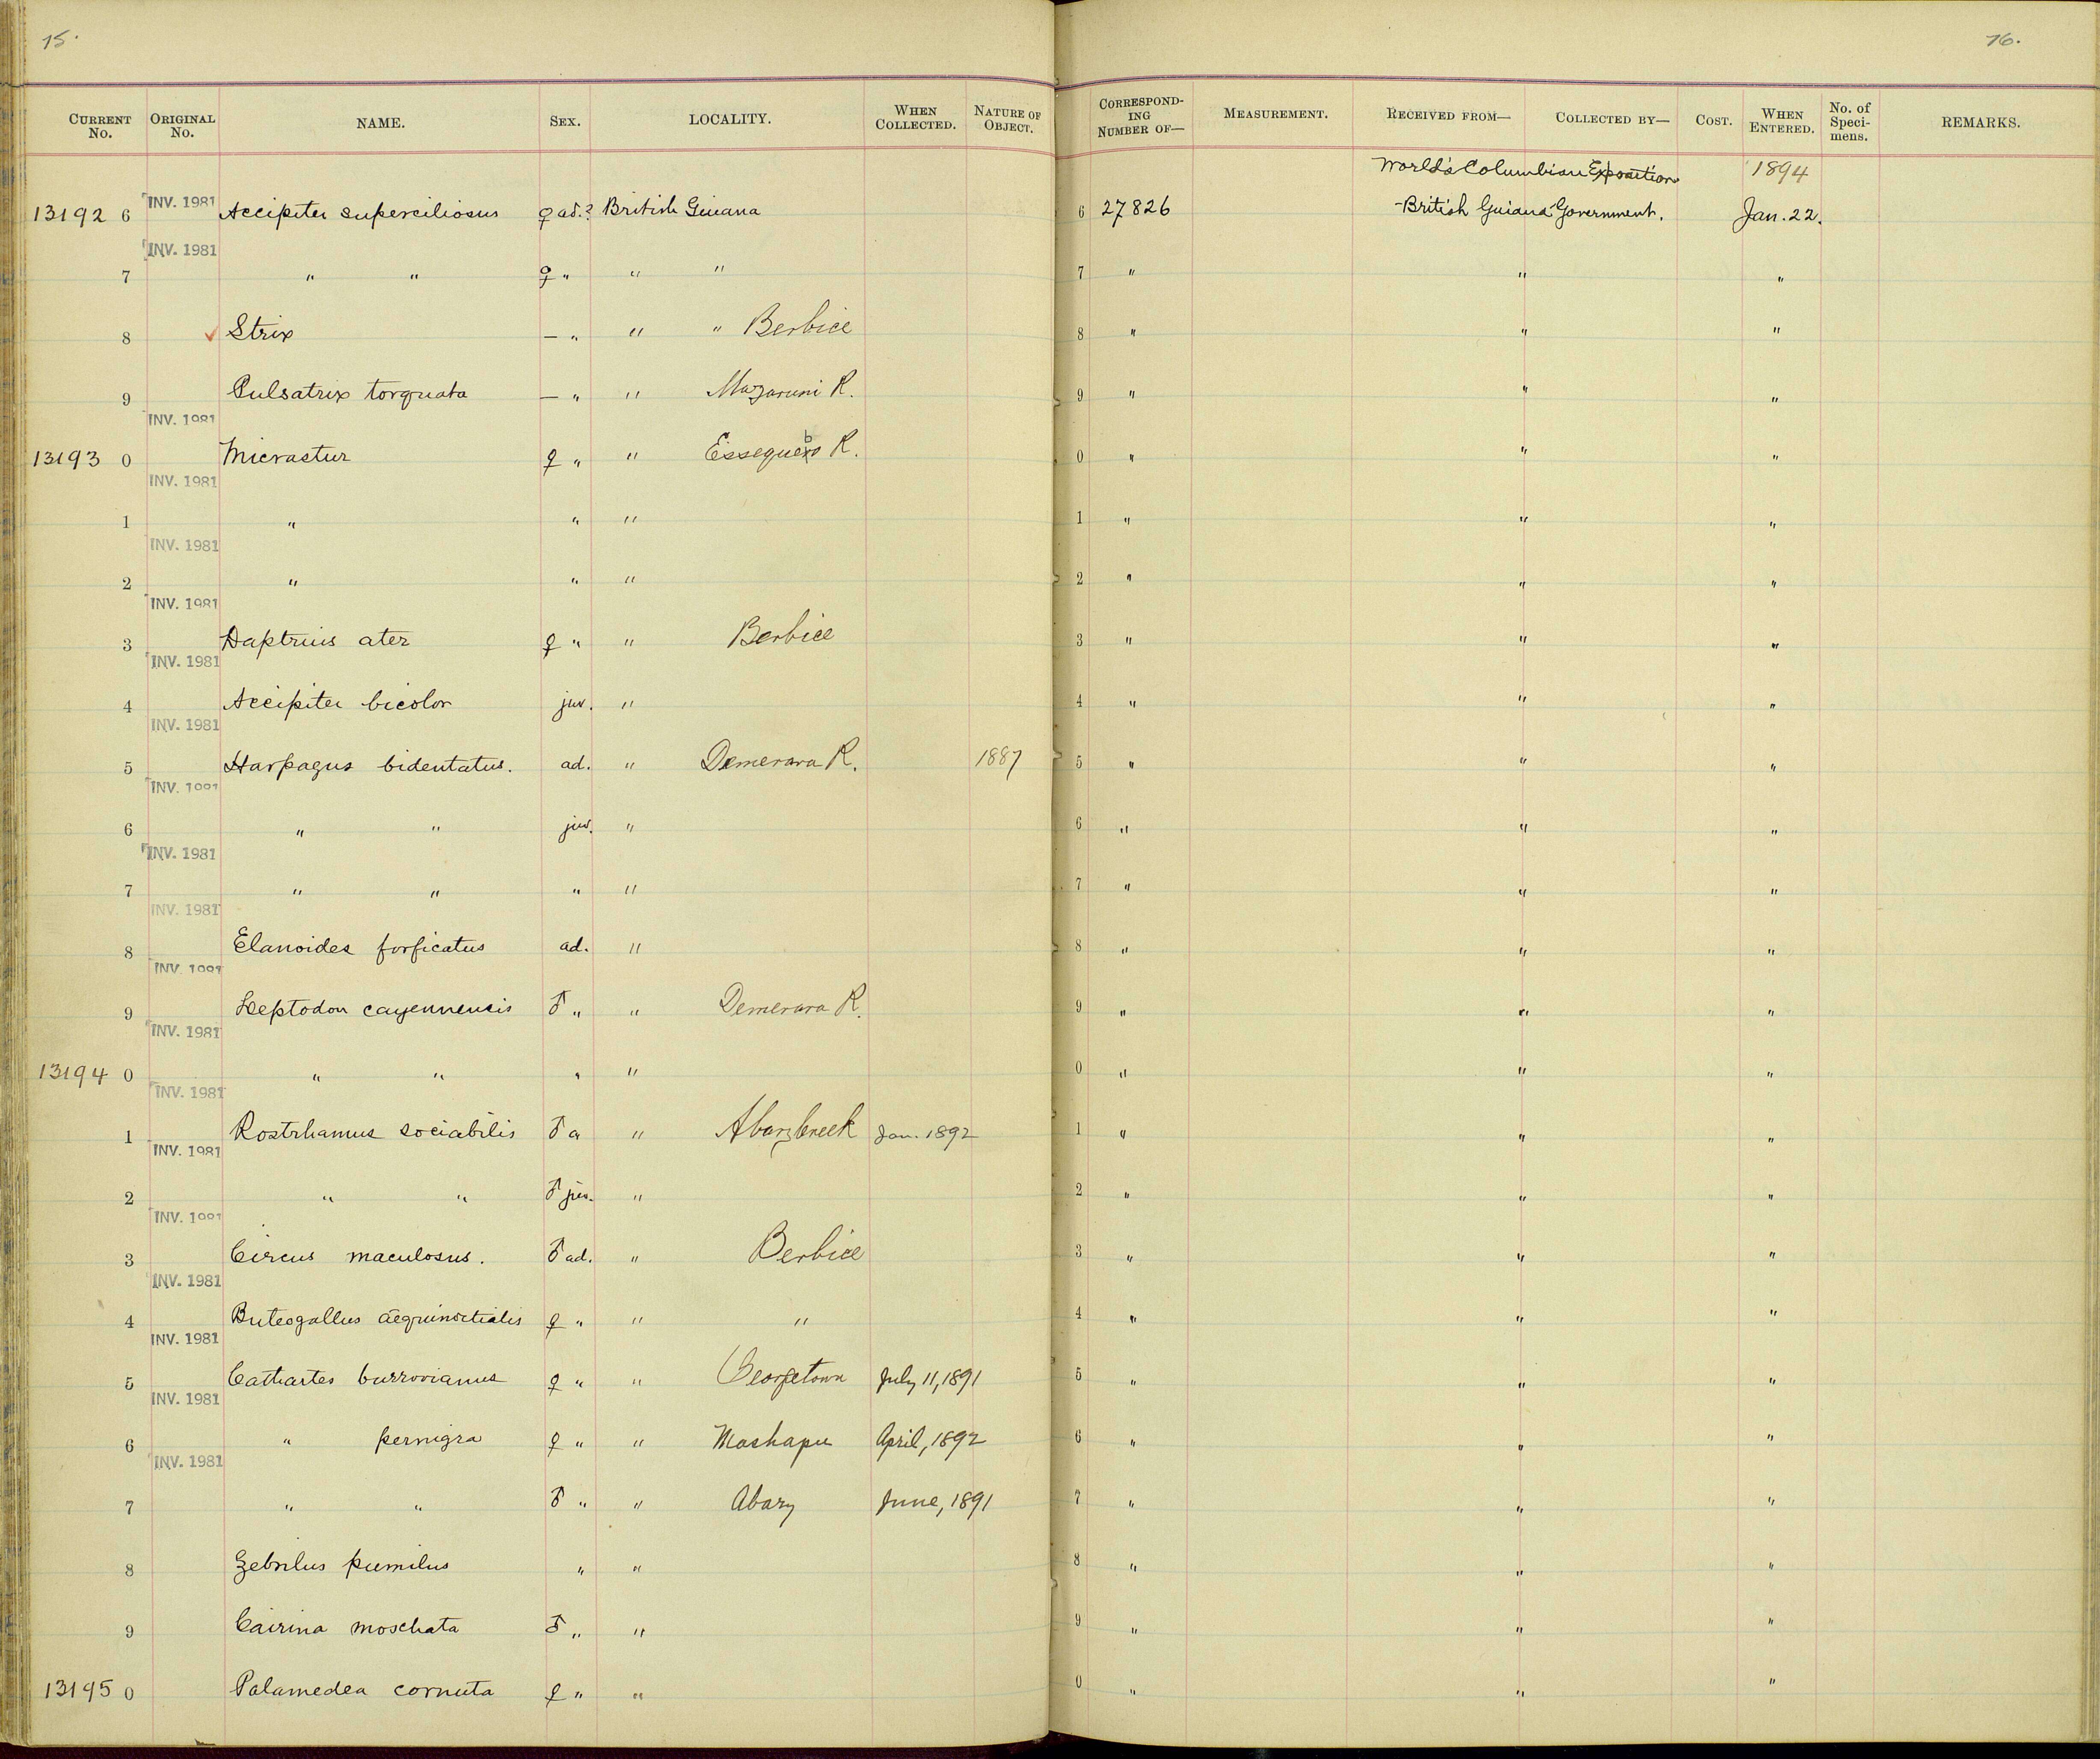 75.
76.
CURRENT No. ORIGINAL No. NAME. SEX. LOCALITY. WHEN COLLECTED. NATURE OF OBJECT. CORRESPONDING NUMBER OF— MEASUREMENT. RECEIVED FROM— COLLECTED BY— COST. WHEN ENTERED. No. of Specimens. REMARKS.
World's Columbian Exposition 1894
13192 6 INV. 1981 Accipiter superciliosus ♀ ad.? British Guiana 6 27826 -British Guiana Government. Jan. 22.
INV. 1981
7 " " ♀ " " " 7 " " "
8 ✓ Strix — " " " Berbice 8 " " "
9 Pulsatrix torquata — " " Mazaruni R. 9 " " "
INV. 1981
13193 0 Micrastur ♀ " " Essequebo R. 0 " " "
INV. 1981
1 " " " 1 " " "
INV. 1981
2 " " " 2 " " "
INV. 1981
3 Daptrius ater ♀ " " Berbice 3 " " "
INV. 1981
4 Accipiter bicolor juv. " 4 " " "
INV. 1981
5 Harpagus bidentatus. ad. " Demerara R. 1887 5 " " "
INV. 1981
6 " " juv. " 6 " " "
INV. 1981
7 " " " " 7 " " "
INV. 1981
8 Elanoides forficatus ad. " 8 " " "
INV. 1981
9 Leptodon cayennensis ♂ " " Demerara R. 9 " " "
INV. 1981
13194 0 " " " " 0 " " "
INV. 1981
1 Rostrhamus sociabilis ♂ a " Abary Creek Jan. 1892 1 " " "
INV. 1981
2 " " ♂ juv. " 2 " " "
INV. 1981
3 Circus maculosus. ♂ ad. " Berbice 3 " " "
INV. 1981
4 Buteogallus aequinoctialis ♀ " " " 4 " " "
INV. 1981
5 Cathartes burrovianus ♀ " " Georgetown July 11, 1891 5 " " "
INV. 1981
6 " pernigra ♀ " " Moshapu April, 1892 6 " " "
INV. 1981
7 " " ♂ " " Abary June, 1891 7 " " "
8 Zebrilus pumilus " " 8 " " "
9 Cairina moschata ♂ " " 9 " " "
13195 0 Palamedea cornuta ♀ " " 0 " " "